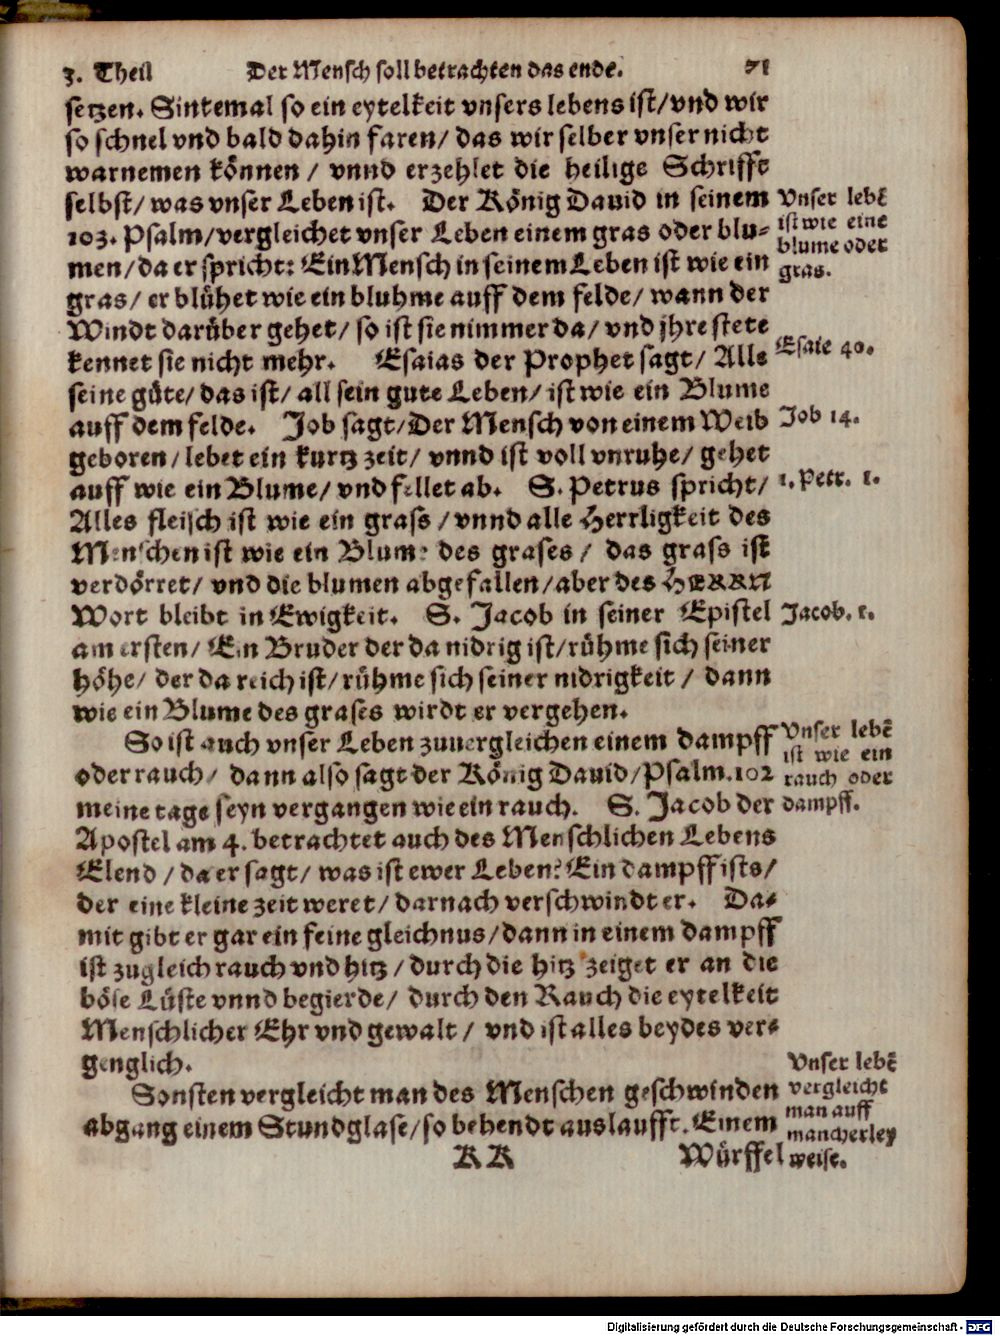 3. Theil Der Mensch soll betrachten das ende. 71
setzen. Sintemal so ein eytelkeit vnsers lebens ist/vnd wir
so schnel vnd bald dahin faren/ das wir selber vnser nicht
warnemen können / vnnd erzehlet die heilige Schrifft
selbst/ was vnser Leben ist. Der König Dauid in seinem
103. Psalm/vergleichet vnser Leben einem gras oder blu-
men/da er spricht: Ein Mensch in seinem Leben ist wie ein
gras/ er blühet wie ein bluhme auff dem felde/ wann der
Windt darüber gehet/ so ist sie nimmer da/ vnd jhre stete
kennet sie nicht mehr. Esaias der Prophet sagt/ Alle
seine güte/ das ist/ all sein gute Leben/ ist wie ein Blume
auff dem felde. Job sagt/Der Mensch von einem Weib
geboren/ lebet ein kurtz zeit/ vnnd ist voll vnruhe/ gehet
auff wie ein Blume/ vnd fellet ab. S. Petrus spricht/
Alles fleisch ist wie ein grass /vnnd alle Herrligkeit des
Menschen ist wie ein Blume des grases / das grass ist
verdörret/ vnd die blumen abgefallen/aber des HERRN
Wort bleibt in Ewigkeit. S. Jacob in seiner Epistel
am ersten/ Ein Bruder der da nidrig ist/rühme sich seiner
höhe/ der da reich ist/ rühme sich seiner nidrigkeit / dann
wie ein Blume des grases wirdt er vergehen.
So ist auch vnser Leben zuuergleichen einem dampff
oder rauch/ dann also sagt der König Dauid/Psalm.102
meine tage seyn vergangen wie ein rauch. S. Jacob der
Apostel am 4. betrachtet auch des Menschlichen Lebens
Elend /da er sagt/ was ist ewer Leben? Ein dampff ists/
der eine kleine zeit weret/ darnach verschwindt er. Da-
mit gibt er gar ein feine gleichnus/dann in einem dampff
ist zugleich rauch vnd hitz /durch die hitz zeiget er an die
böse Lüste vnnd begierde/ durch den Rauch die eytelkeit
Menschlicher Ehr vnd gewalt / vnd ist alles beydes ver-
genglich.
Sonsten vergleicht man des Menschen geschwinden
abgang einem Stundglase/so behendt auslaufft. Einem
KK Würffel
Vnser lebẽ
ist wie eine
blume oder
gras.
Esaie 40.
Job 14.
1. Petr. 1.
Jacob. 1.
Vnser lebẽ
ist wie ein
rauch oder
dampff.
Vnser lebẽ
vergleicht
man auff
mancherley
weise.
Digitalisierung gefördert durch die Deutsche Forschungsgemeinschaft - DFG